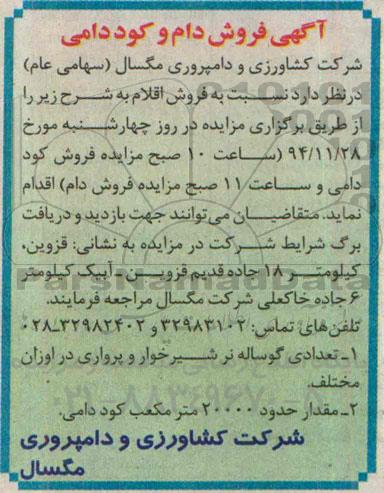 آگهی فروش دام و کود دامی
شرکت کشاورزی و دامپروری مگسال (سهامی عام)
درنظر دارد نسبت به فروش اقلام به شرح زیر را
از طریق برگزاری مزایده در روز چهارشنبه مورخ
۹۴/۱۱/۲۸ (ساعت ۱۰ صبح مزایده فروش کود
دامی و ساعت ۱۱ صبح مزایده فروش دام) اقدام
نماید. متقاضیان می‌توانند جهت بازدید و دریافت
برگ شرایط شرکت در مزایده به نشانی: قزوین،
کیلومتر ۱۸ جاده قدیم قزوین ـ آبیک کیلومتر
۶ جاده خاکعلی شرکت مگسال مراجعه فرمایند.
تلفن‌های تماس: ۳۲۹۸۳۱۰۲ و ۳۲۹۸۲۴۰۲ـ۰۲۸
۱ـ تعدادی گوساله نر شیرخوار و پرواری در اوزان
مختلف.
۲ـ مقدار حدود ۲۰۰۰۰ متر مکعب کود دامی.
شرکت کشاورزی و دامپروری
مگسال
ParsNamadData